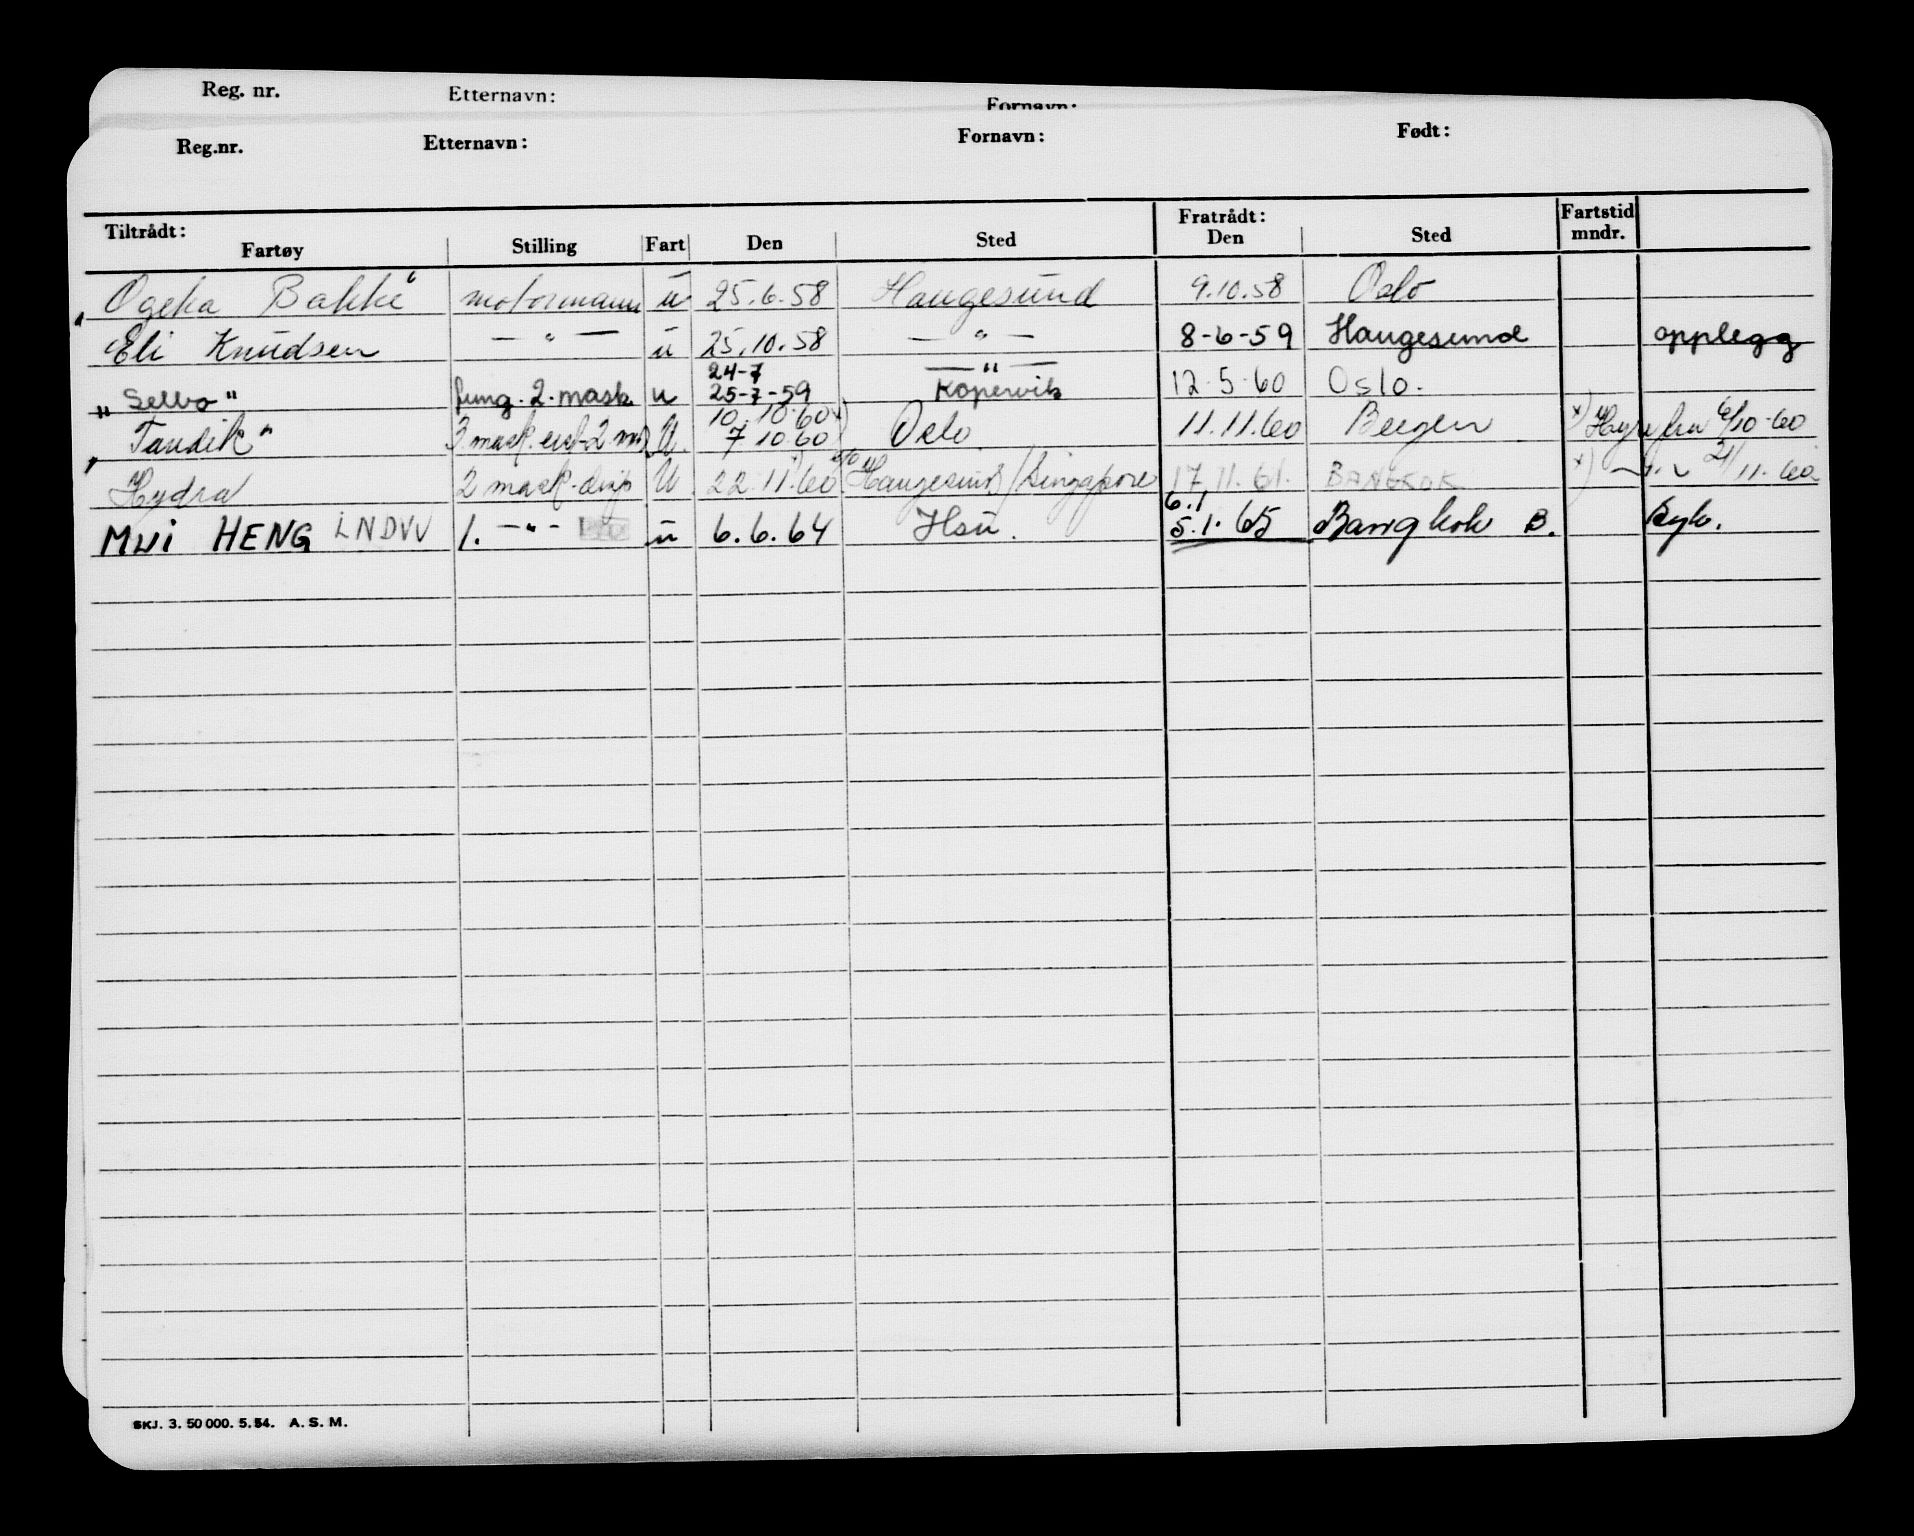 Reg. nr. Etternavn: Fornavn:
Reg.nr. Etternavn: Fornavn: Født:
Tiltrådt: Fratrådt: Fartstid
Fartøy Stilling Fart Den Sted Den Sted mndr.
"Ogeka Bakke" motormann u 25.6.58 Haugesund 9.10.58 Oslo
Eli Knudsen — " — u 25.10.58 — " — 8-6-59 Haugesund opplegg
24-7 — " —
"Selbo" fung. 2. mask u 25-7-59 Kopervik 12-5-60 Oslo.
10.10.60
"Tandik" 3 mask. 2 U. 7 10.60 Oslo 11.11.60 Bergen x) Hyre fra 6/10-60
Hydra 2 mask. disp U 22.11.60 Haugesund/Singapore 17.11.61. BANGKOK x) — " — 21/11.60
6.1
MUI HENG LNDVV 1. — " — u 6.6.64 Hsu. 5.1.65 Bangkok B. Syk.
SKJ. 3. 50 000. 5. 54. A. S. M.